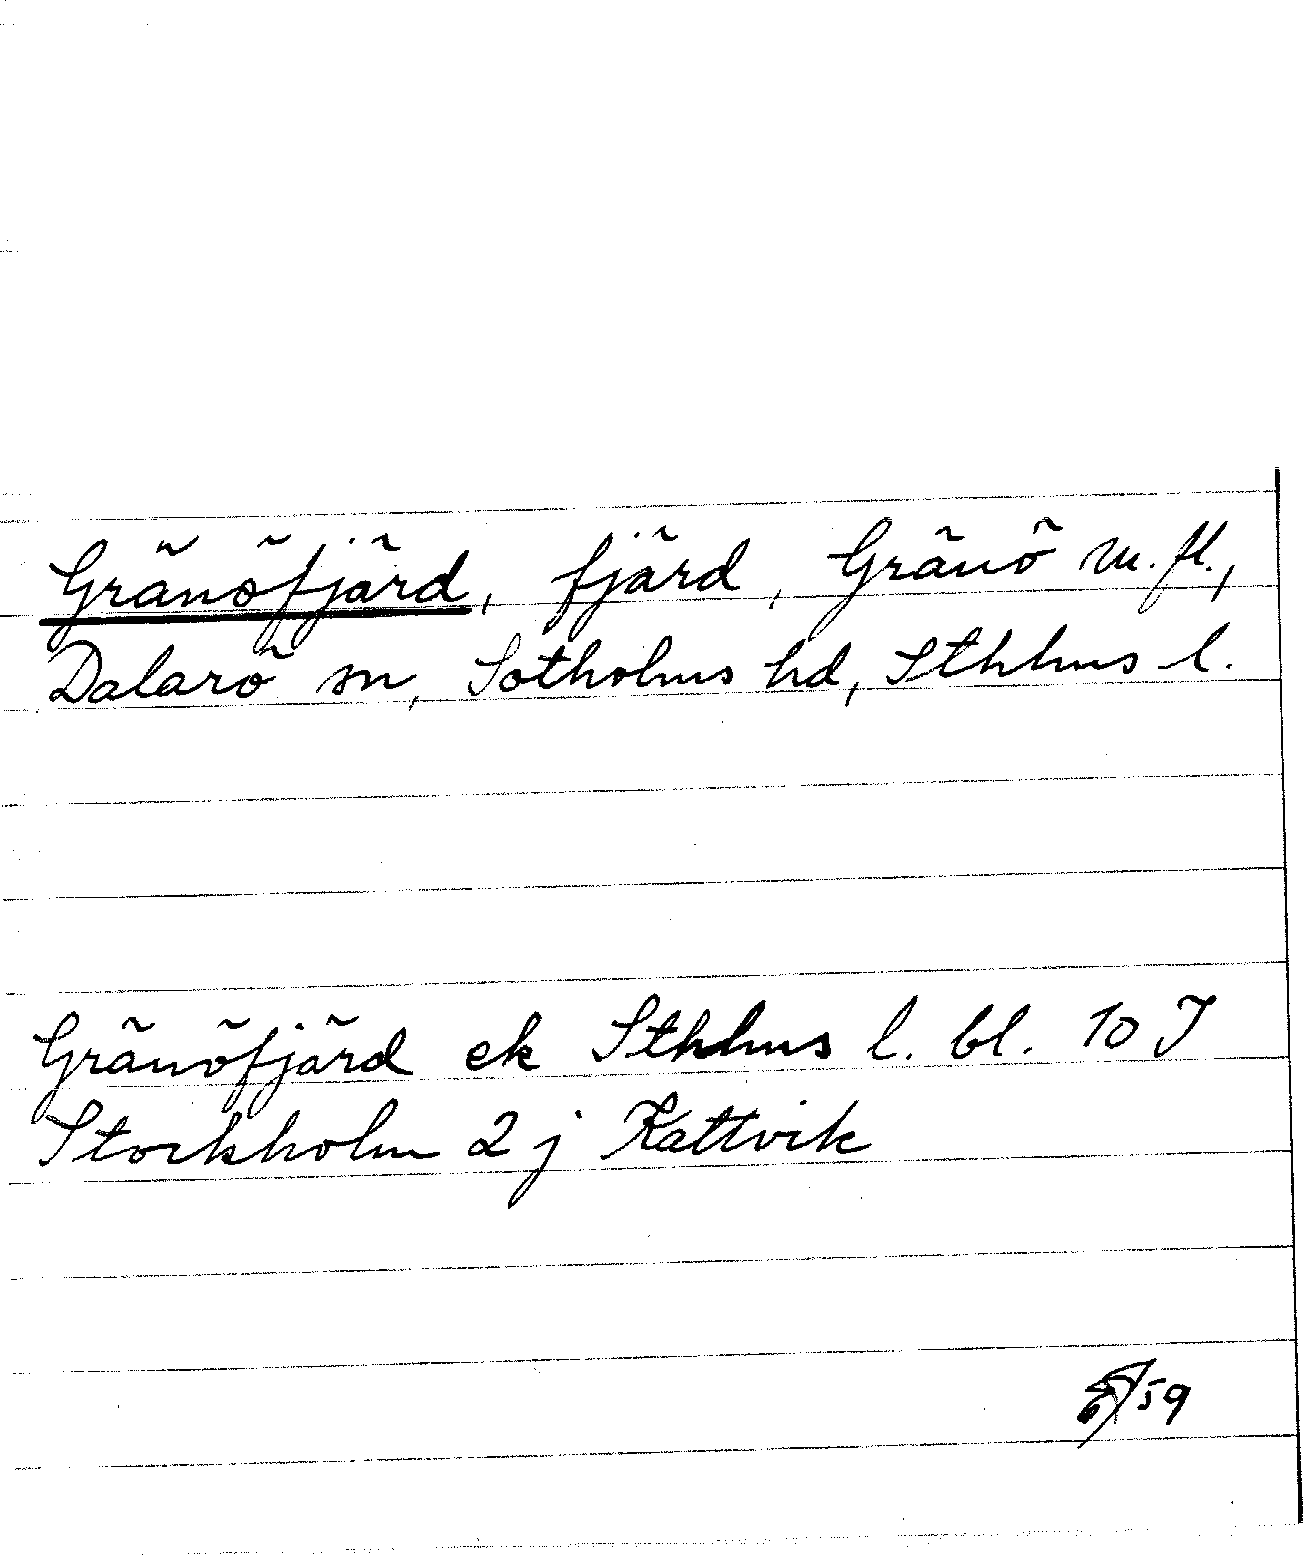 Gränöfjärd, fjärd, Gränö m.fl.,
Dalarö sn, Sotholms hd, Sthlms l.
Gränöfjärd ek Sthlms l. bl. 10 I
Stockholm 2 j Kattvik
59